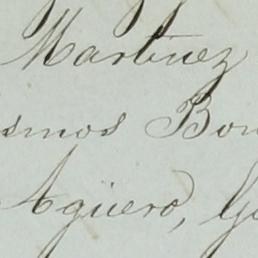 Martinez
smos Bon
Agüero, G